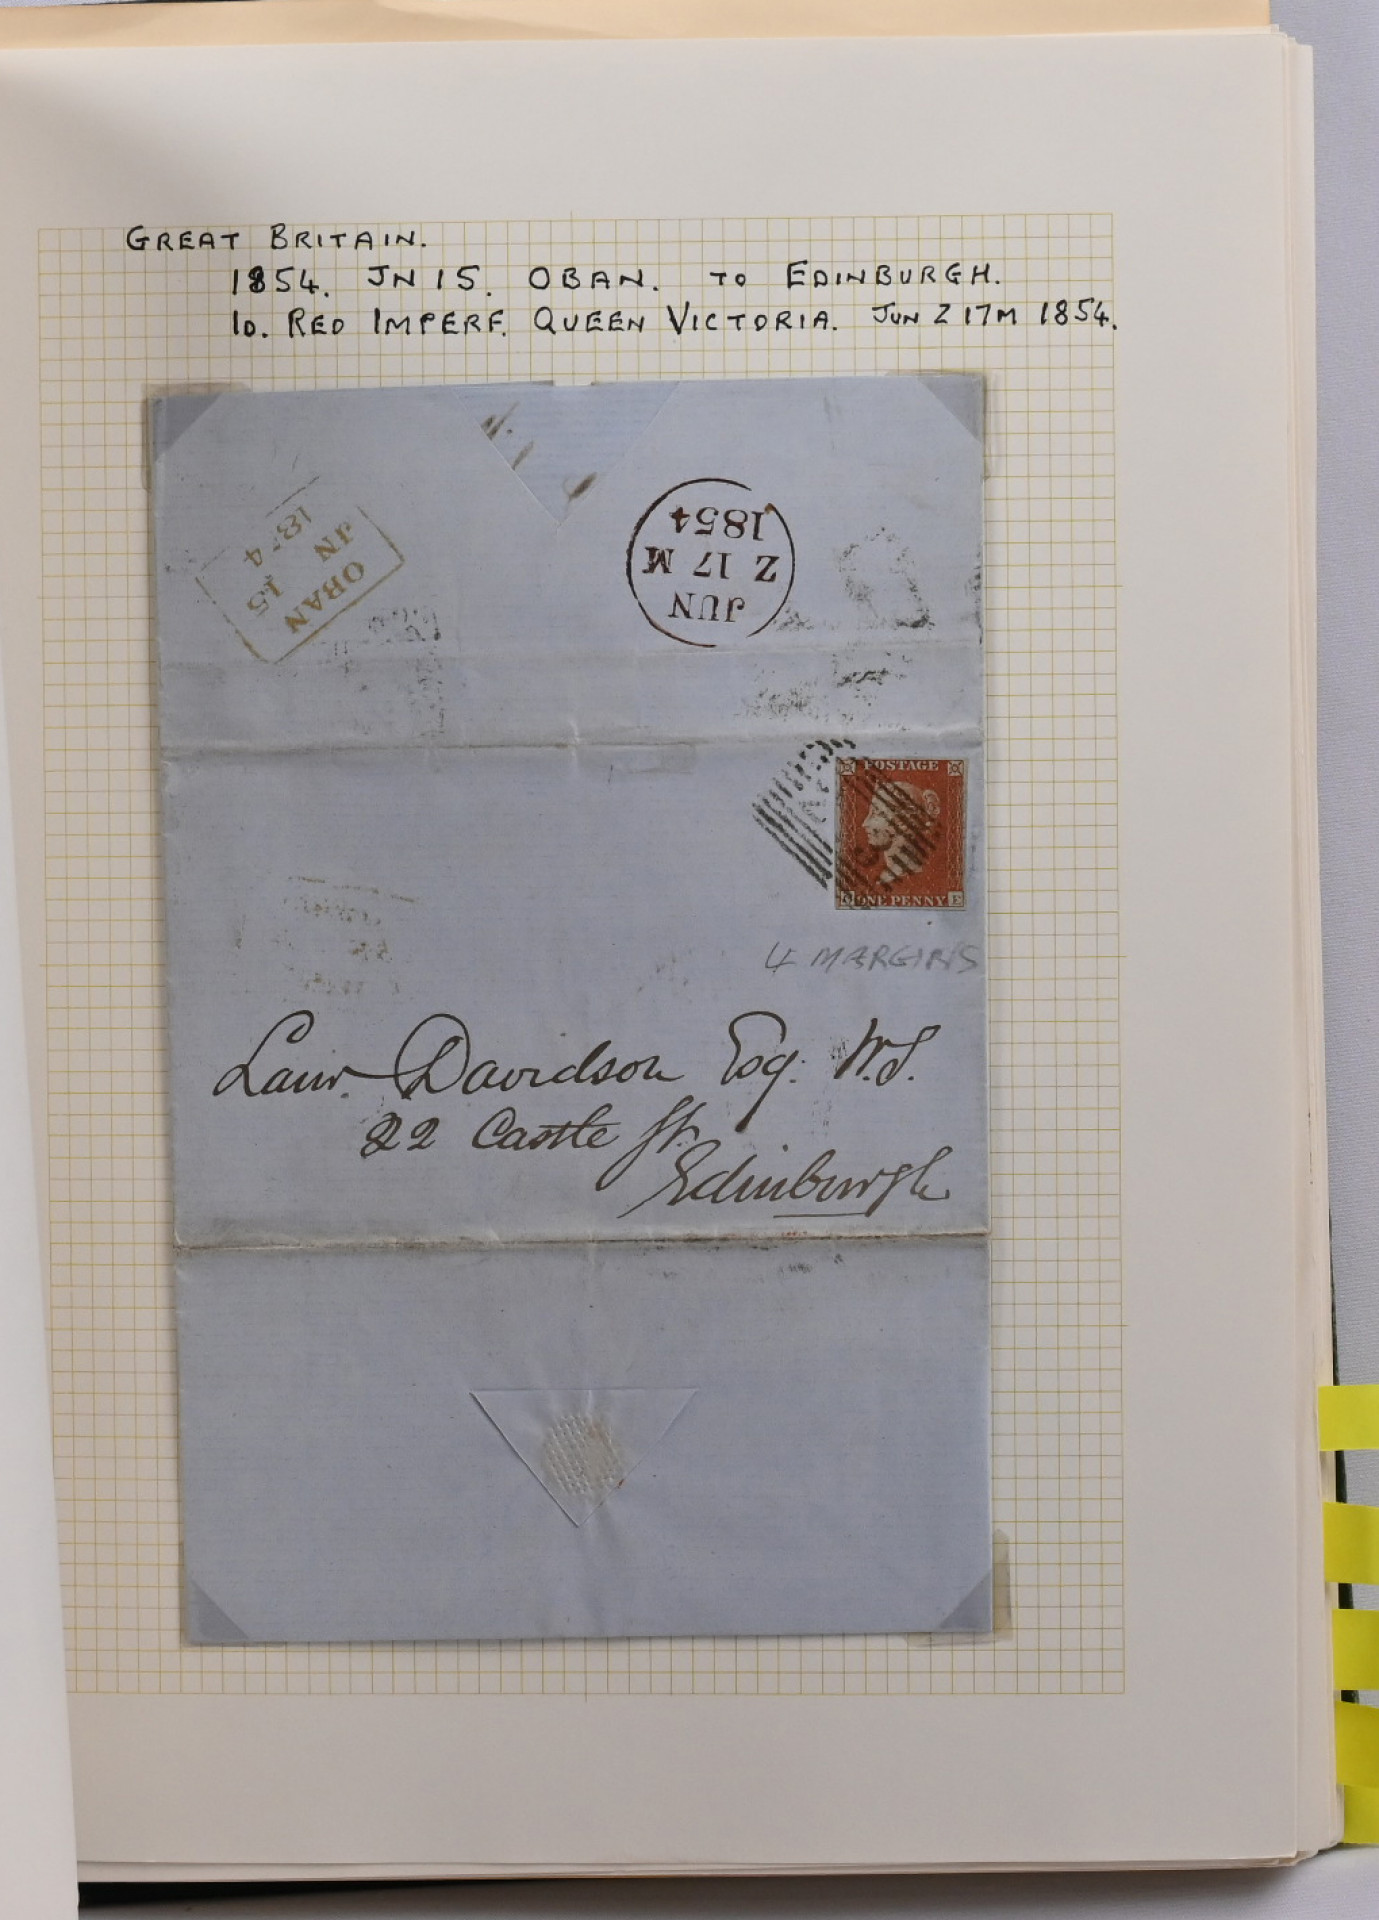 GREAT BRITAIN.
1854. JN 15. OBAN. TO EDINBURGH.
1D. RED IMPERF. QUEEN VICTORIA. JUN Z 17M 1854.
OBAN
JN 15
18 4
JUN
Z 17 M
1854
POSTAGE
ONE PENNY E
4 MARGINS
Lawr. Davidson Esq. W.S.
22 Castle St.
Edinburgh